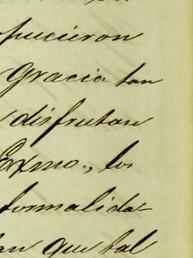 pusieron
Gracia tan
disfrutan
Exmo., los
formalida
que tal